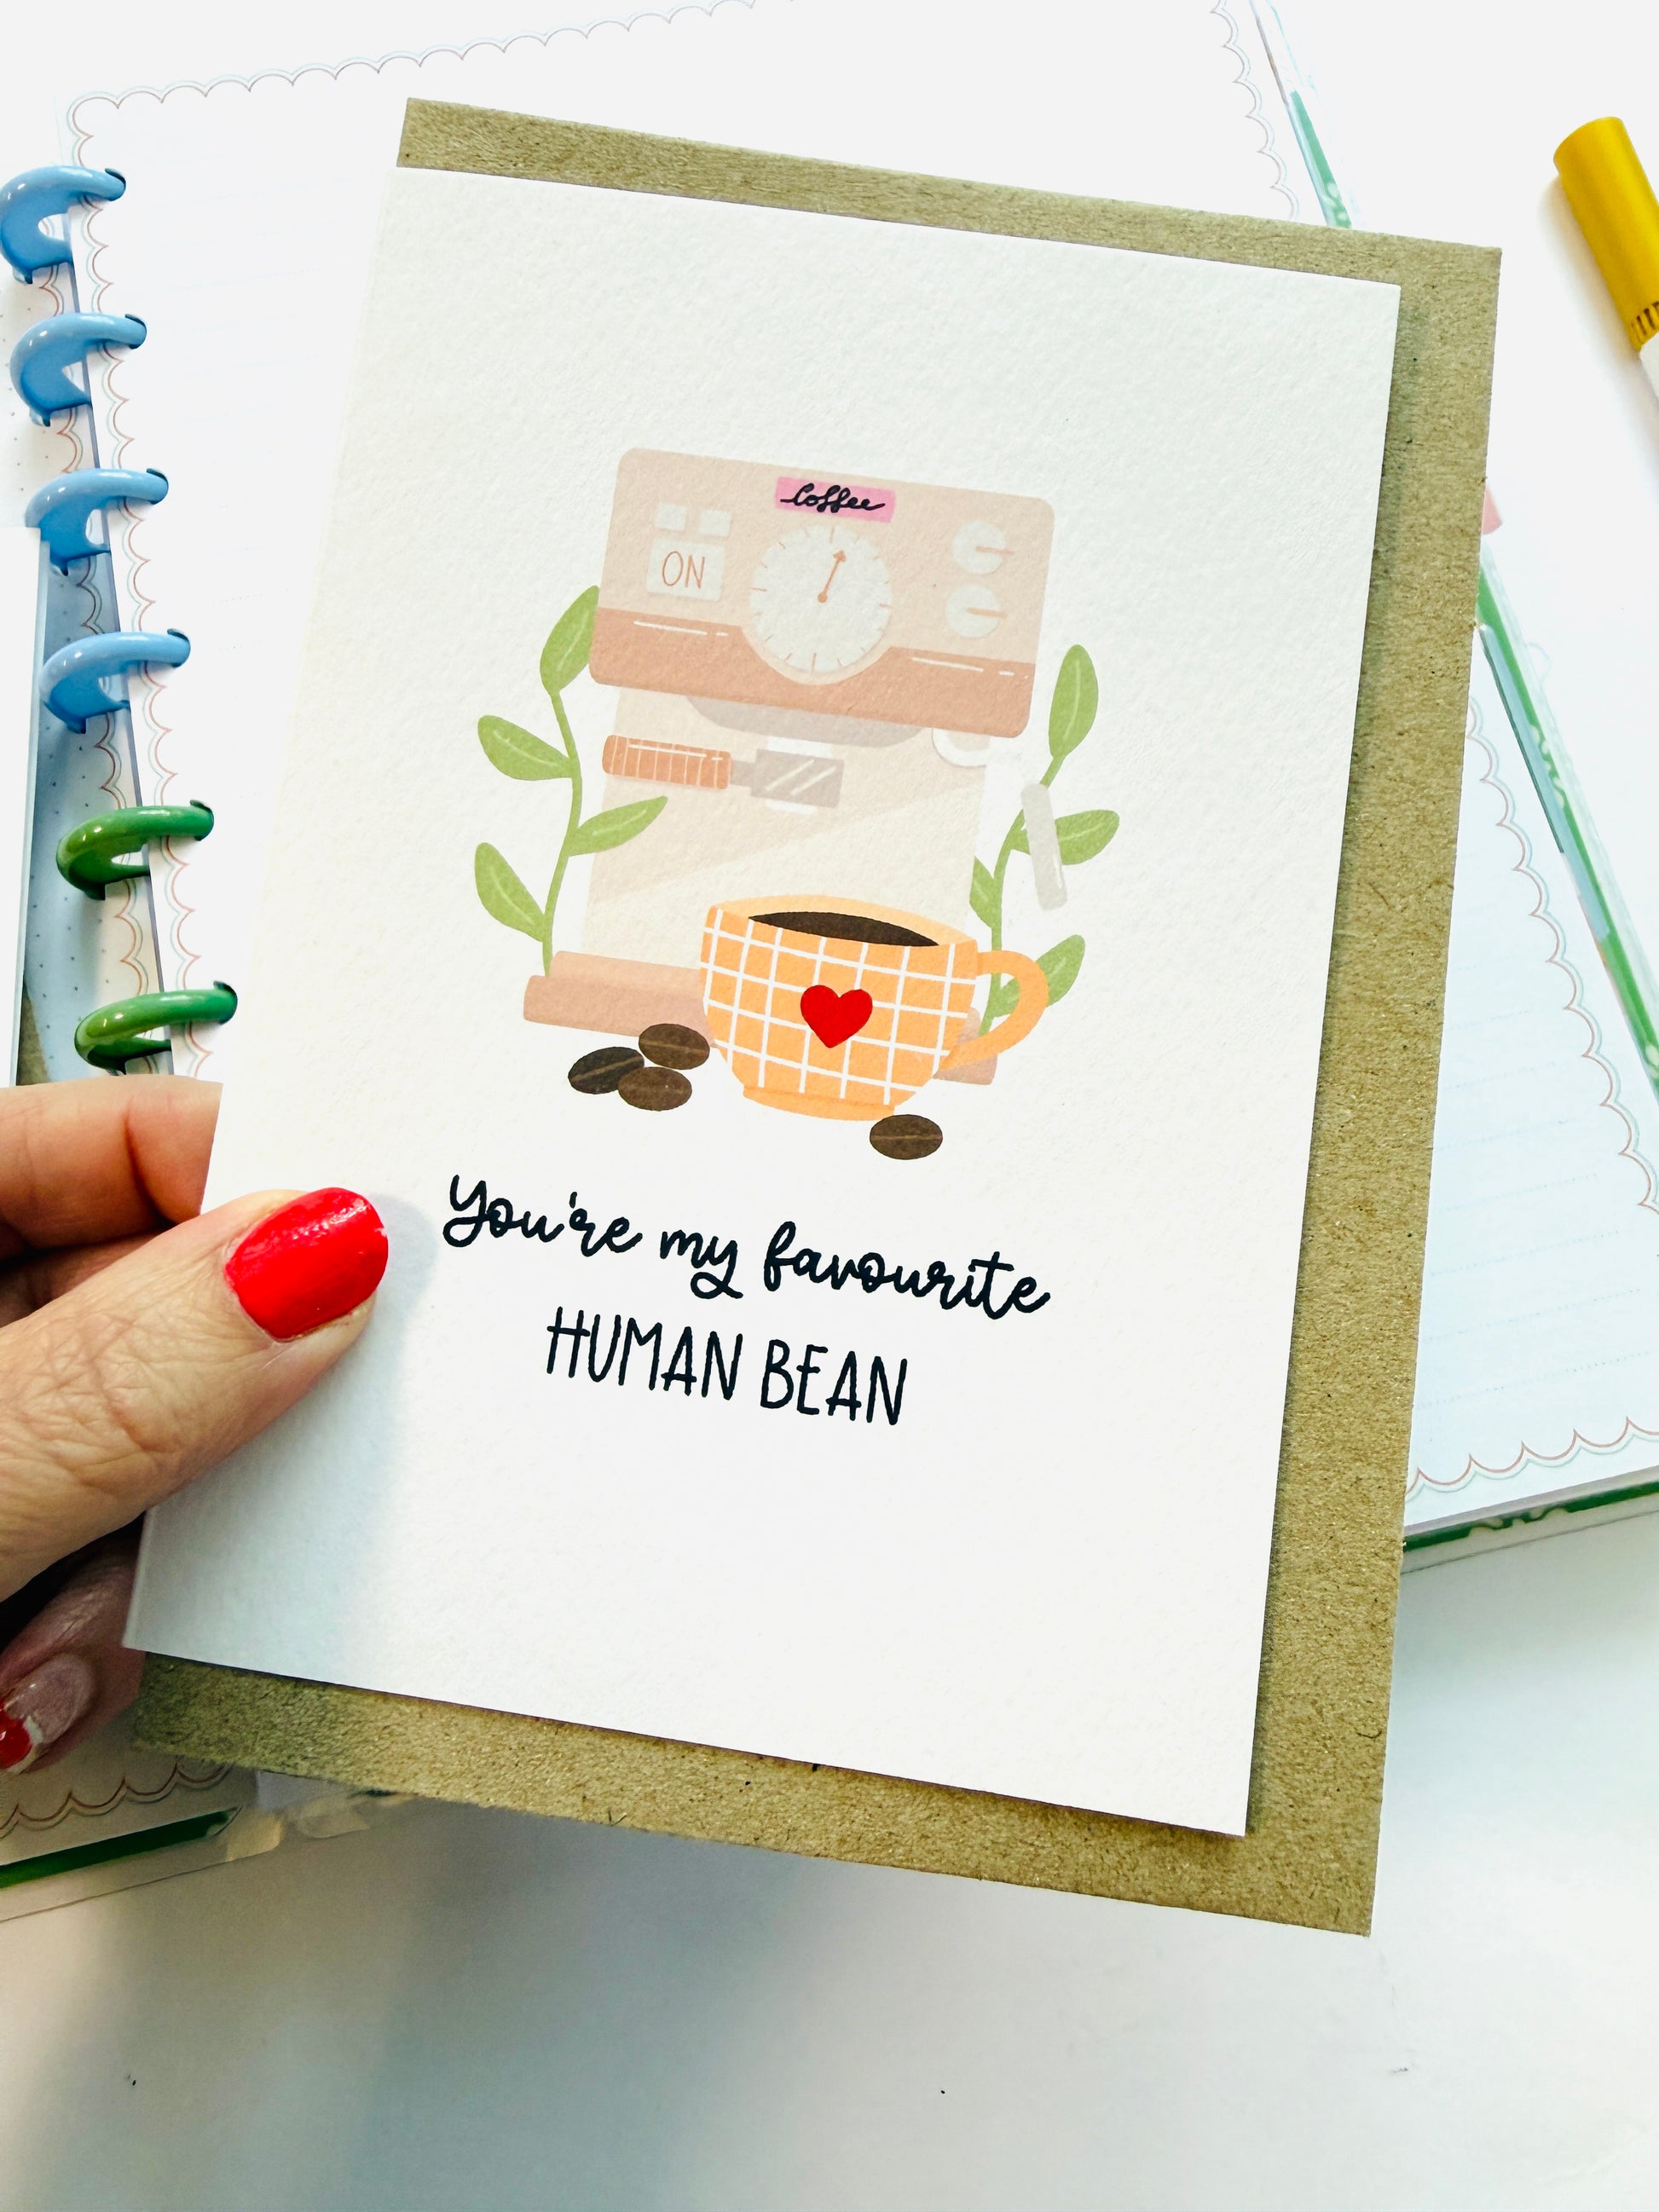 Coffee
ON
You're my favourite
HUMAN BEAN